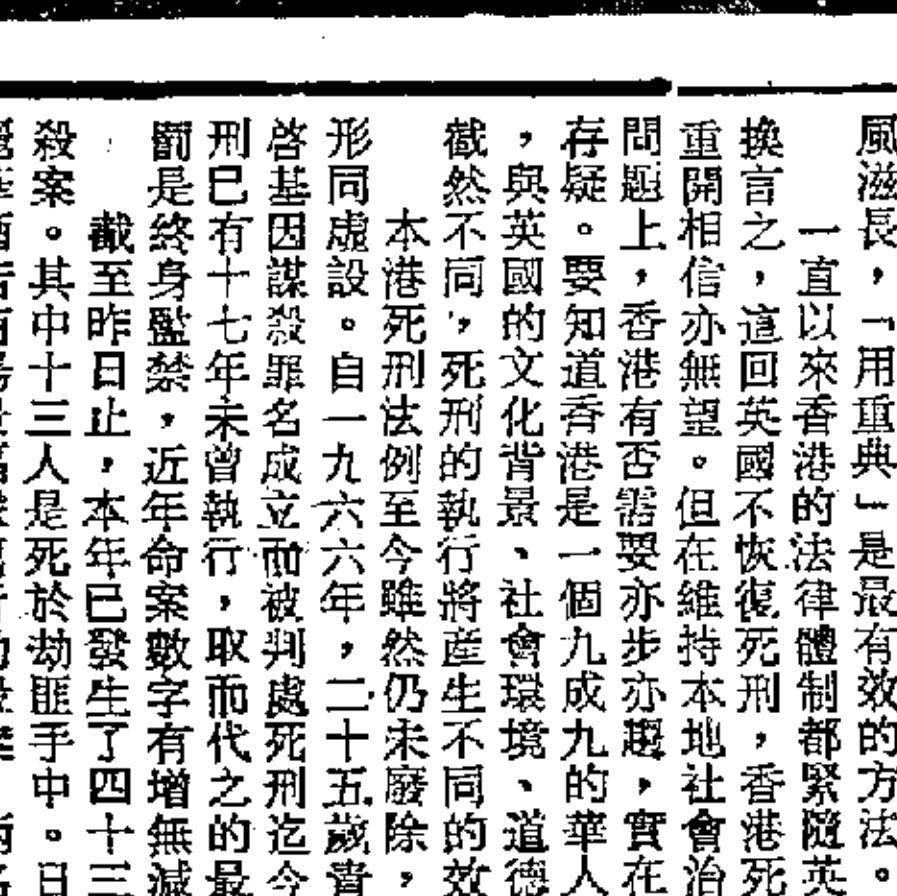 風滋長，「用重典」是最有效的方法。
一直以來香港的法律體制都緊隨英
換言之，這回英國不恢復死刑，香港死
重開相信亦無望。但在維持本地社會治
問題上，香港有否需要亦步亦趨，實在
存疑。要知道香港是一個九成九的華人
，與英國的文化背景、社會環境、道德
截然不同，死刑的執行將產生不同的效
本港死刑法例至今雖然仍未廢除，
形同虛設。自一九六六年，二十五歲青
啓基因謀殺罪名成立而被判處死刑迄今
刑已有十七年未曾執行，取而代之的最
罰是終身監禁，近年命案數字有增無減
截至昨日止，本年已發生了四十三
殺案。其中十三人是死於劫匪手中。日